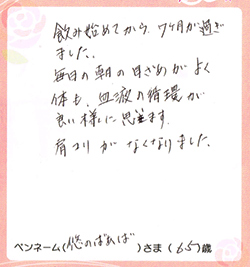 飲み始めてから、7ヶ月が過ぎ
ました。
毎日の朝の目ざめがよく
体も、血液の循環が
良い様に思えます。
肩コリがなくなりました。
ペンネーム(悠のばぁば)さま(65)歳